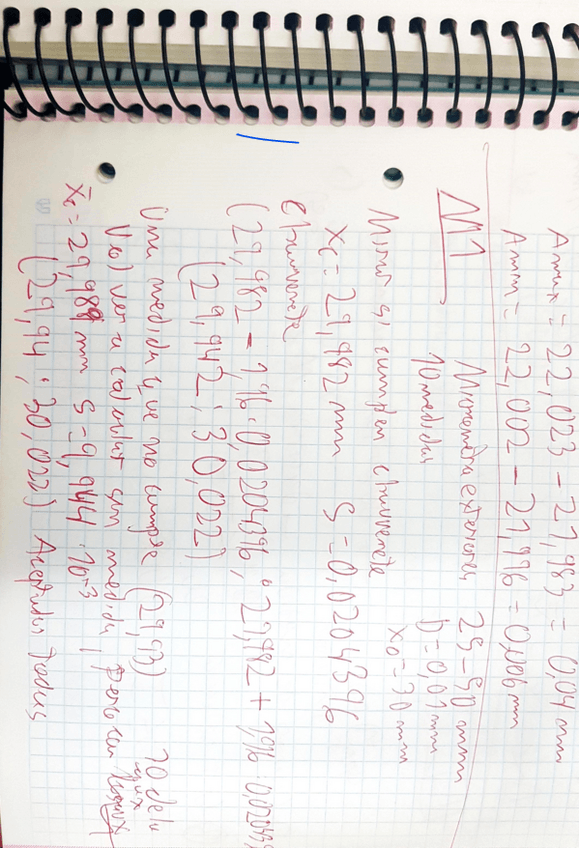 Amax = 22,023 - 21,983 = 0,04 mm
Amin = 22,002 - 21,996 = 0,006 mm
M1 Micrometro exteriores 25-50 mm
10 medidas D=0,01 mm
x0 = 30 mm
Miramos si cumplen chauvenete
Xc = 29,982 mm S = 0,0204396
Chauvenete
(29,982 - 1,96 · 0,0204396 ; 29,982 + 1,96 · 0,020439
(29,942 ; 30,022)
Una medida que no cumple (29,93)
Volver a calcular sin medida, pero con
10 de la
x̄c = 29,988 mm S = 9,944 · 10-3
(29,94 ; 30,022) Aceptadas todas